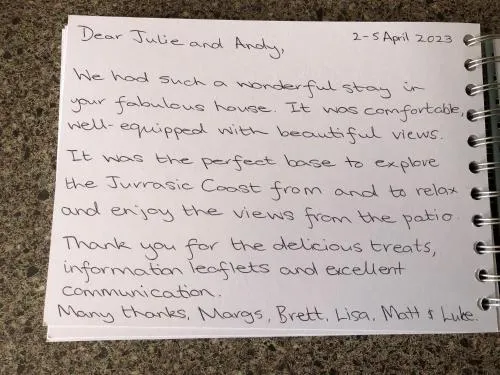 Dear Julie and Andy,
2-5 April 2023
We had such a wonderful stay in
your fabulous house. It was comfortable,
well-equipped with beautiful views.
It was the perfect base to explore
the Jurrasic Coast from and to relax
and enjoy the views from the patio.
Thank you for the delicious treats,
information leaflets and excellent
communication.
Many thanks, Margs, Brett, Lisa, Matt & Luke.